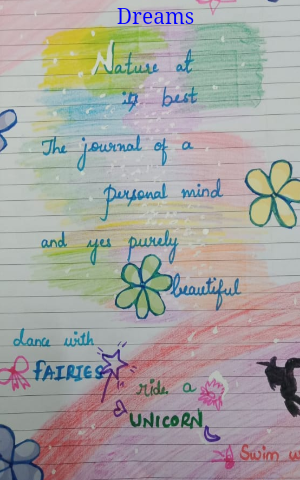 Dreams
Nature at
its best
The journal of a
personal mind
and yes purely
beautiful
dance with
FAIRIES
ride a
UNICORN
Swim